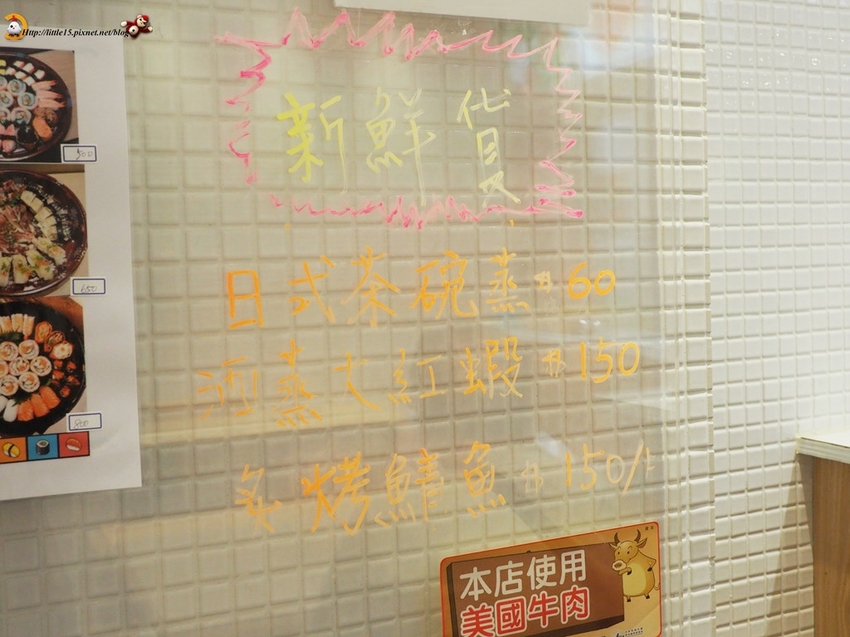 Http://little15.pixnet.net/blog
新鮮貨
日式茶碗蒸$60
酒蒸大紅蝦$150
炙烤鯖魚$150/片
500
650
800
本店使用
美國牛肉